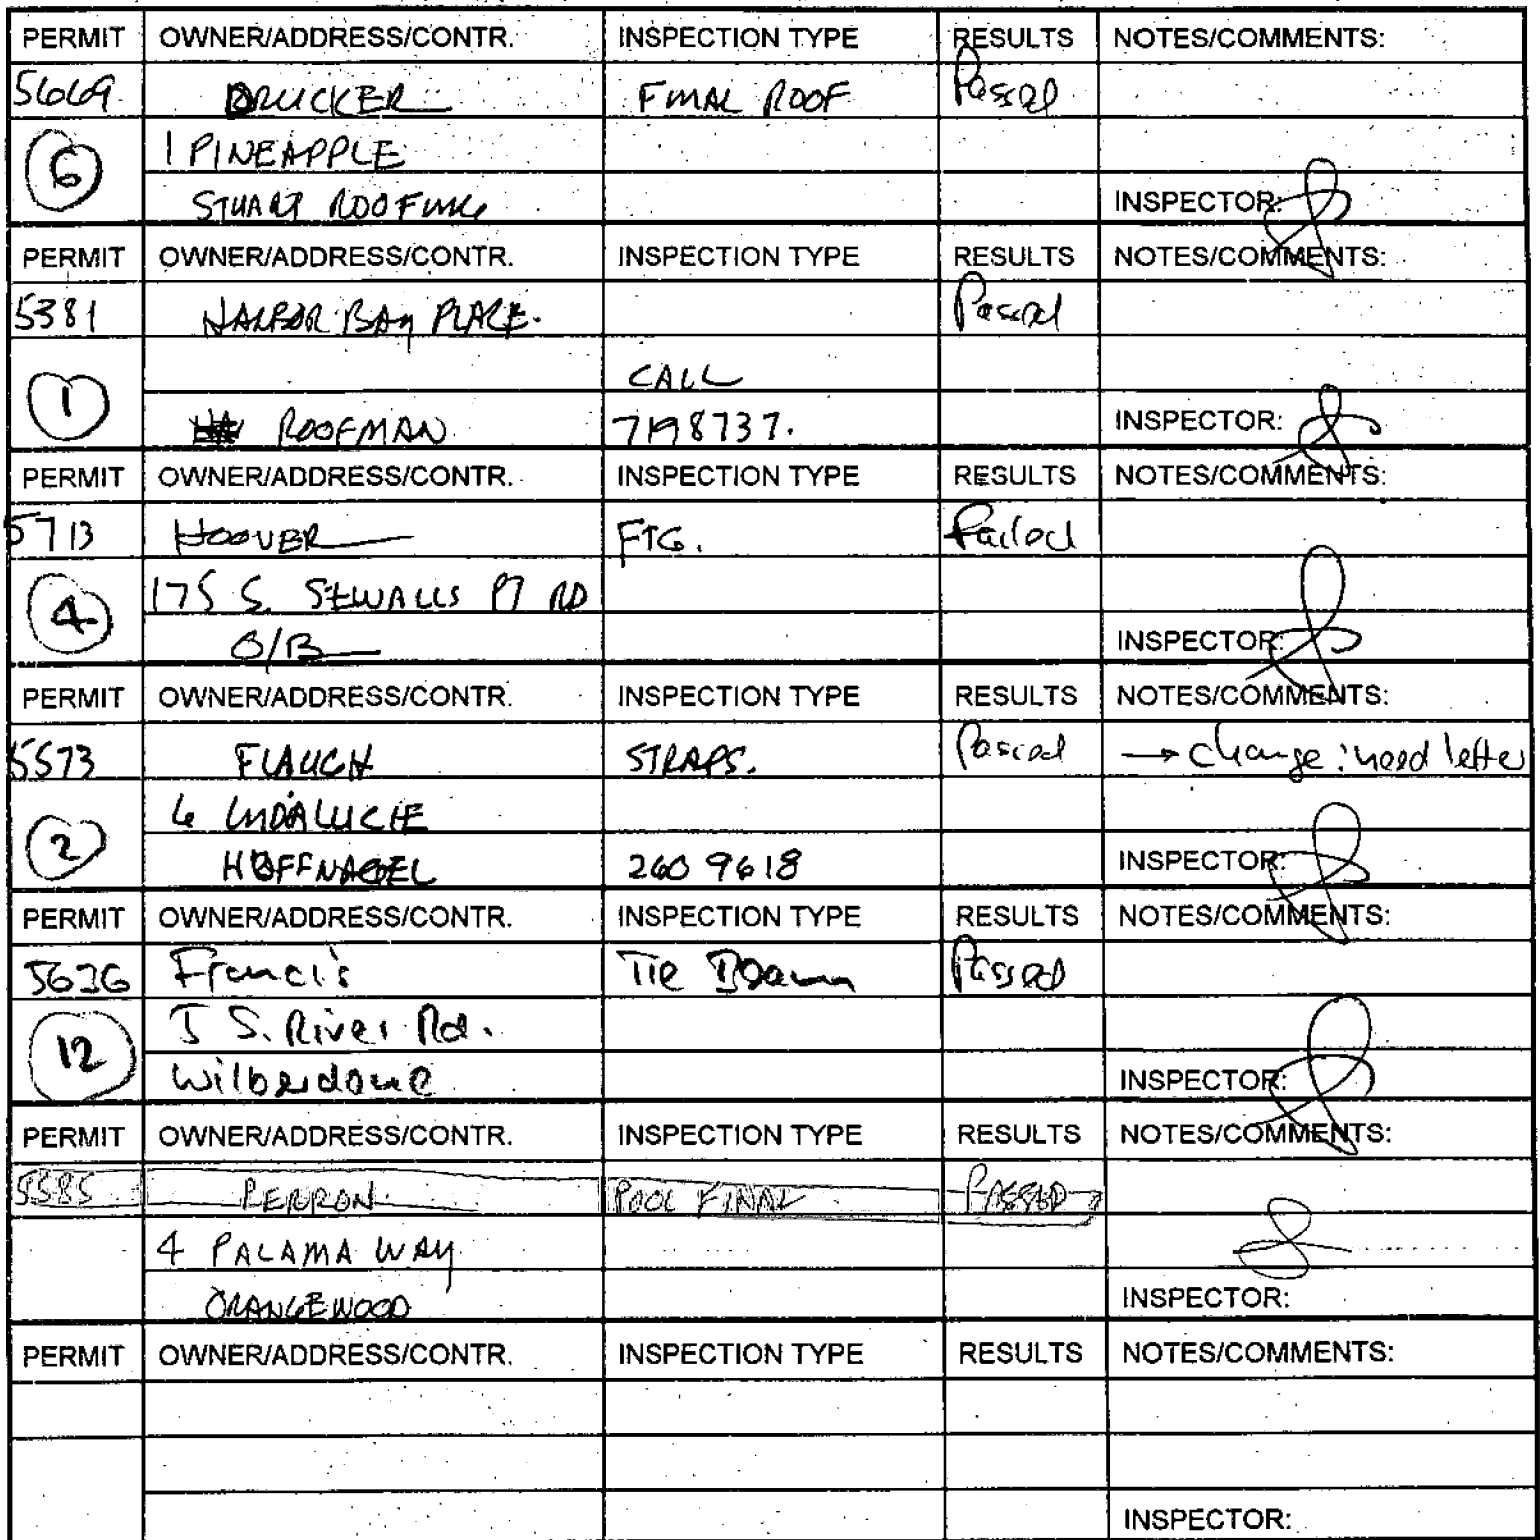 PERMIT OWNER/ADDRESS/CONTR. INSPECTION TYPE RESULTS NOTES/COMMENTS:
5669 DRUCKER FINAL ROOF Passed
6 1 PINEAPPLE
STUART ROOFING INSPECTOR:
PERMIT OWNER/ADDRESS/CONTR. INSPECTION TYPE RESULTS NOTES/COMMENTS:
5381 HARBOR BAY PLACE. Passed
1 CALL
ROOFMAN 7198737. INSPECTOR:
PERMIT OWNER/ADDRESS/CONTR. INSPECTION TYPE RESULTS NOTES/COMMENTS:
5713 HOOVER FTG. Failed
4 175 S. SEWALLS PT RD
O/B INSPECTOR:
PERMIT OWNER/ADDRESS/CONTR. INSPECTION TYPE RESULTS NOTES/COMMENTS:
5573 FLAUGH STRAPS. Passed → change: need letter
2 6 INDALUCIE
HOFFNAGEL 260 9618 INSPECTOR:
PERMIT OWNER/ADDRESS/CONTR. INSPECTION TYPE RESULTS NOTES/COMMENTS:
5636 Francis Tie Beam Passed
12 5 S. River Rd.
INSPECTOR:
PERMIT OWNER/ADDRESS/CONTR. INSPECTION TYPE RESULTS NOTES/COMMENTS:
5585 PERRON POOL FINAL PASSED
4 PALAMA WAY
ORANGEWOOD INSPECTOR:
PERMIT OWNER/ADDRESS/CONTR. INSPECTION TYPE RESULTS NOTES/COMMENTS:
INSPECTOR: